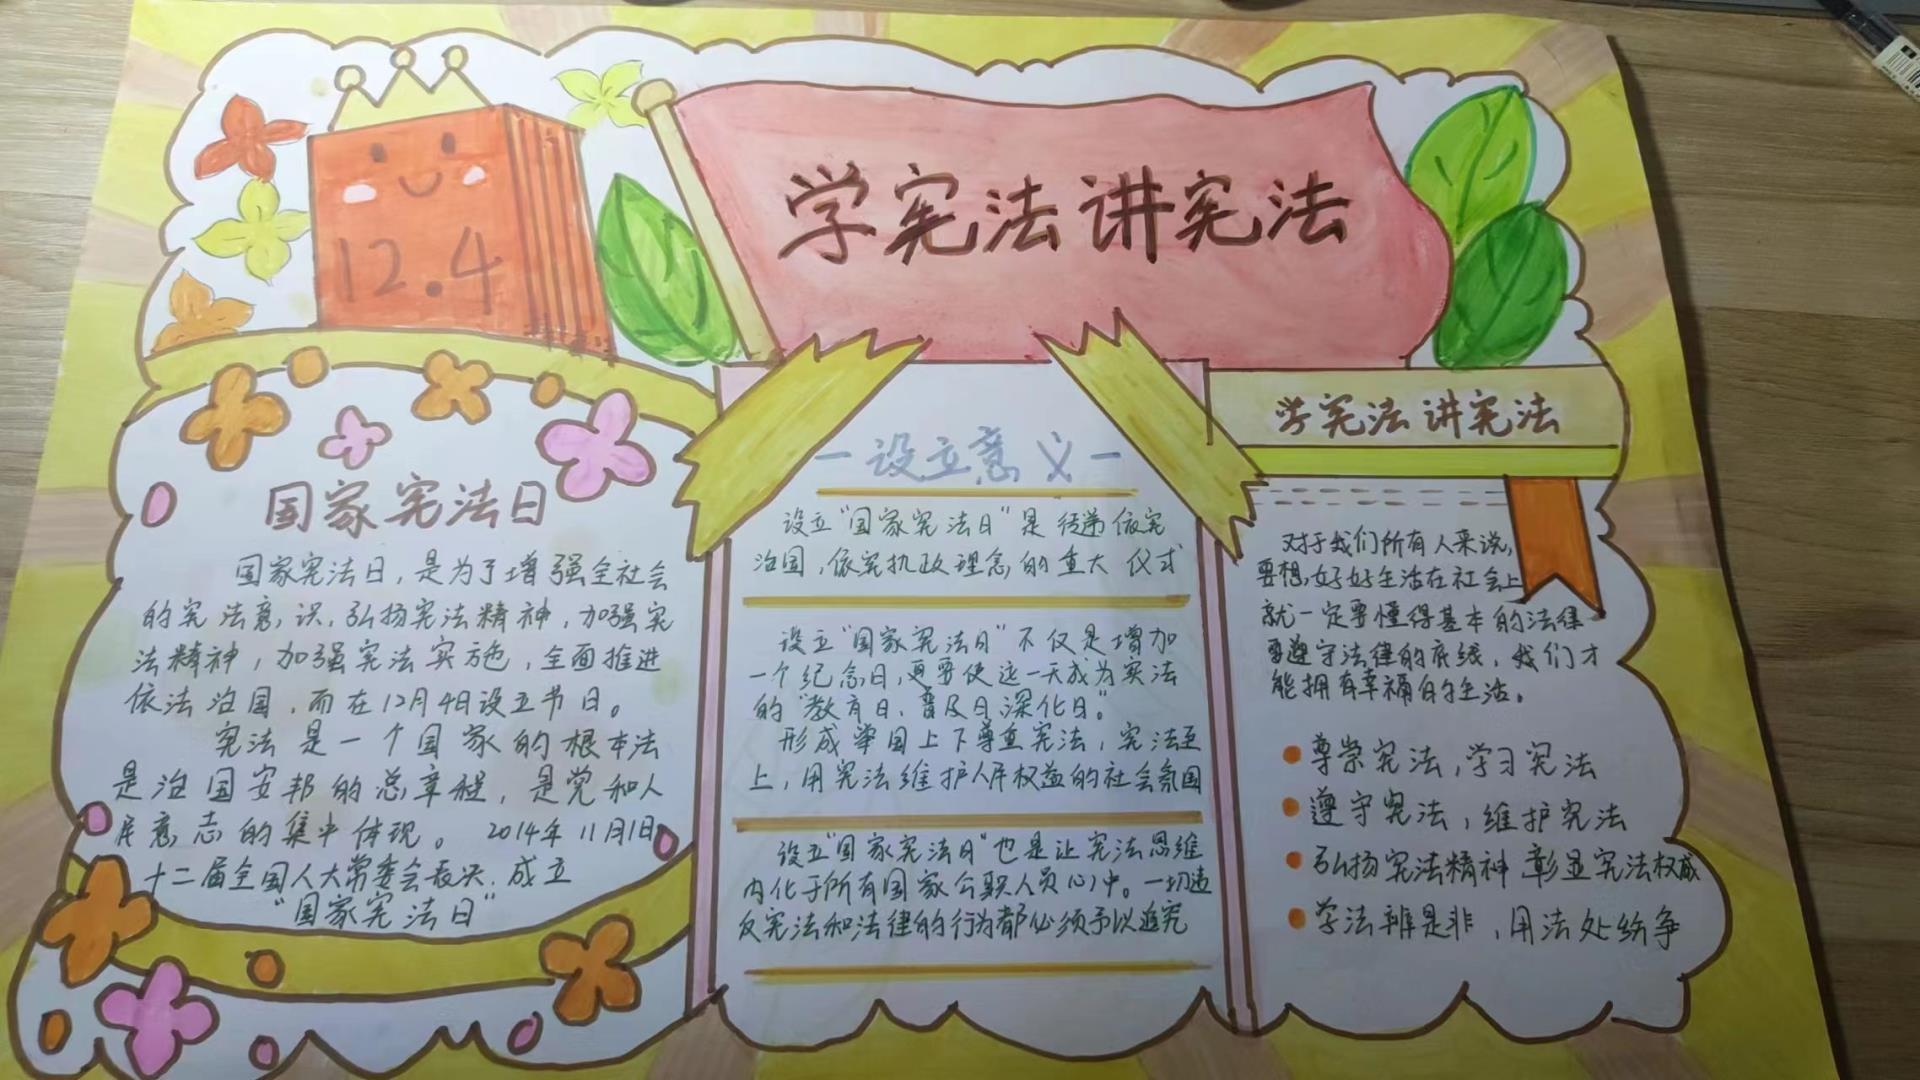 12.4
学宪法讲宪法
国家宪法日
国家宪法日，是为了增强全社会
的宪法意识，弘扬宪法精神，加强宪
法精神，加强宪法实施，全面推进
依法治国，而在12月4日设立节日。
宪法是一个国家的根本法
是治国安邦的总章程，是党和人
民意志的集中体现。2014年11月1日
十二届全国人大常委会表决，成立
“国家宪法日”
-设立意义-
设立“国家宪法日”是传递依宪
治国，依宪执政理念的重大仪式
设立“国家宪法日”不仅是增加
一个纪念日，更要使这一天成为宪法
的“教育日、普及日、深化日”。
形成举国上下尊重宪法，宪法至
上，用宪法维护人民权益的社会氛围
设立“国家宪法日”也是让宪法思维
内化于所有国家公职人员心中。一切违
反宪法和法律的行为都必须予以追究
学宪法讲宪法
对于我们所有人来说，
要想，好好生活在社会上
就一定要懂得基本的法律
要遵守法律的底线，我们才
能拥有幸福的生活。
尊崇宪法，学习宪法
遵守宪法，维护宪法
弘扬宪法精神 彰显宪法权威
学法辨是非，用法处纷争